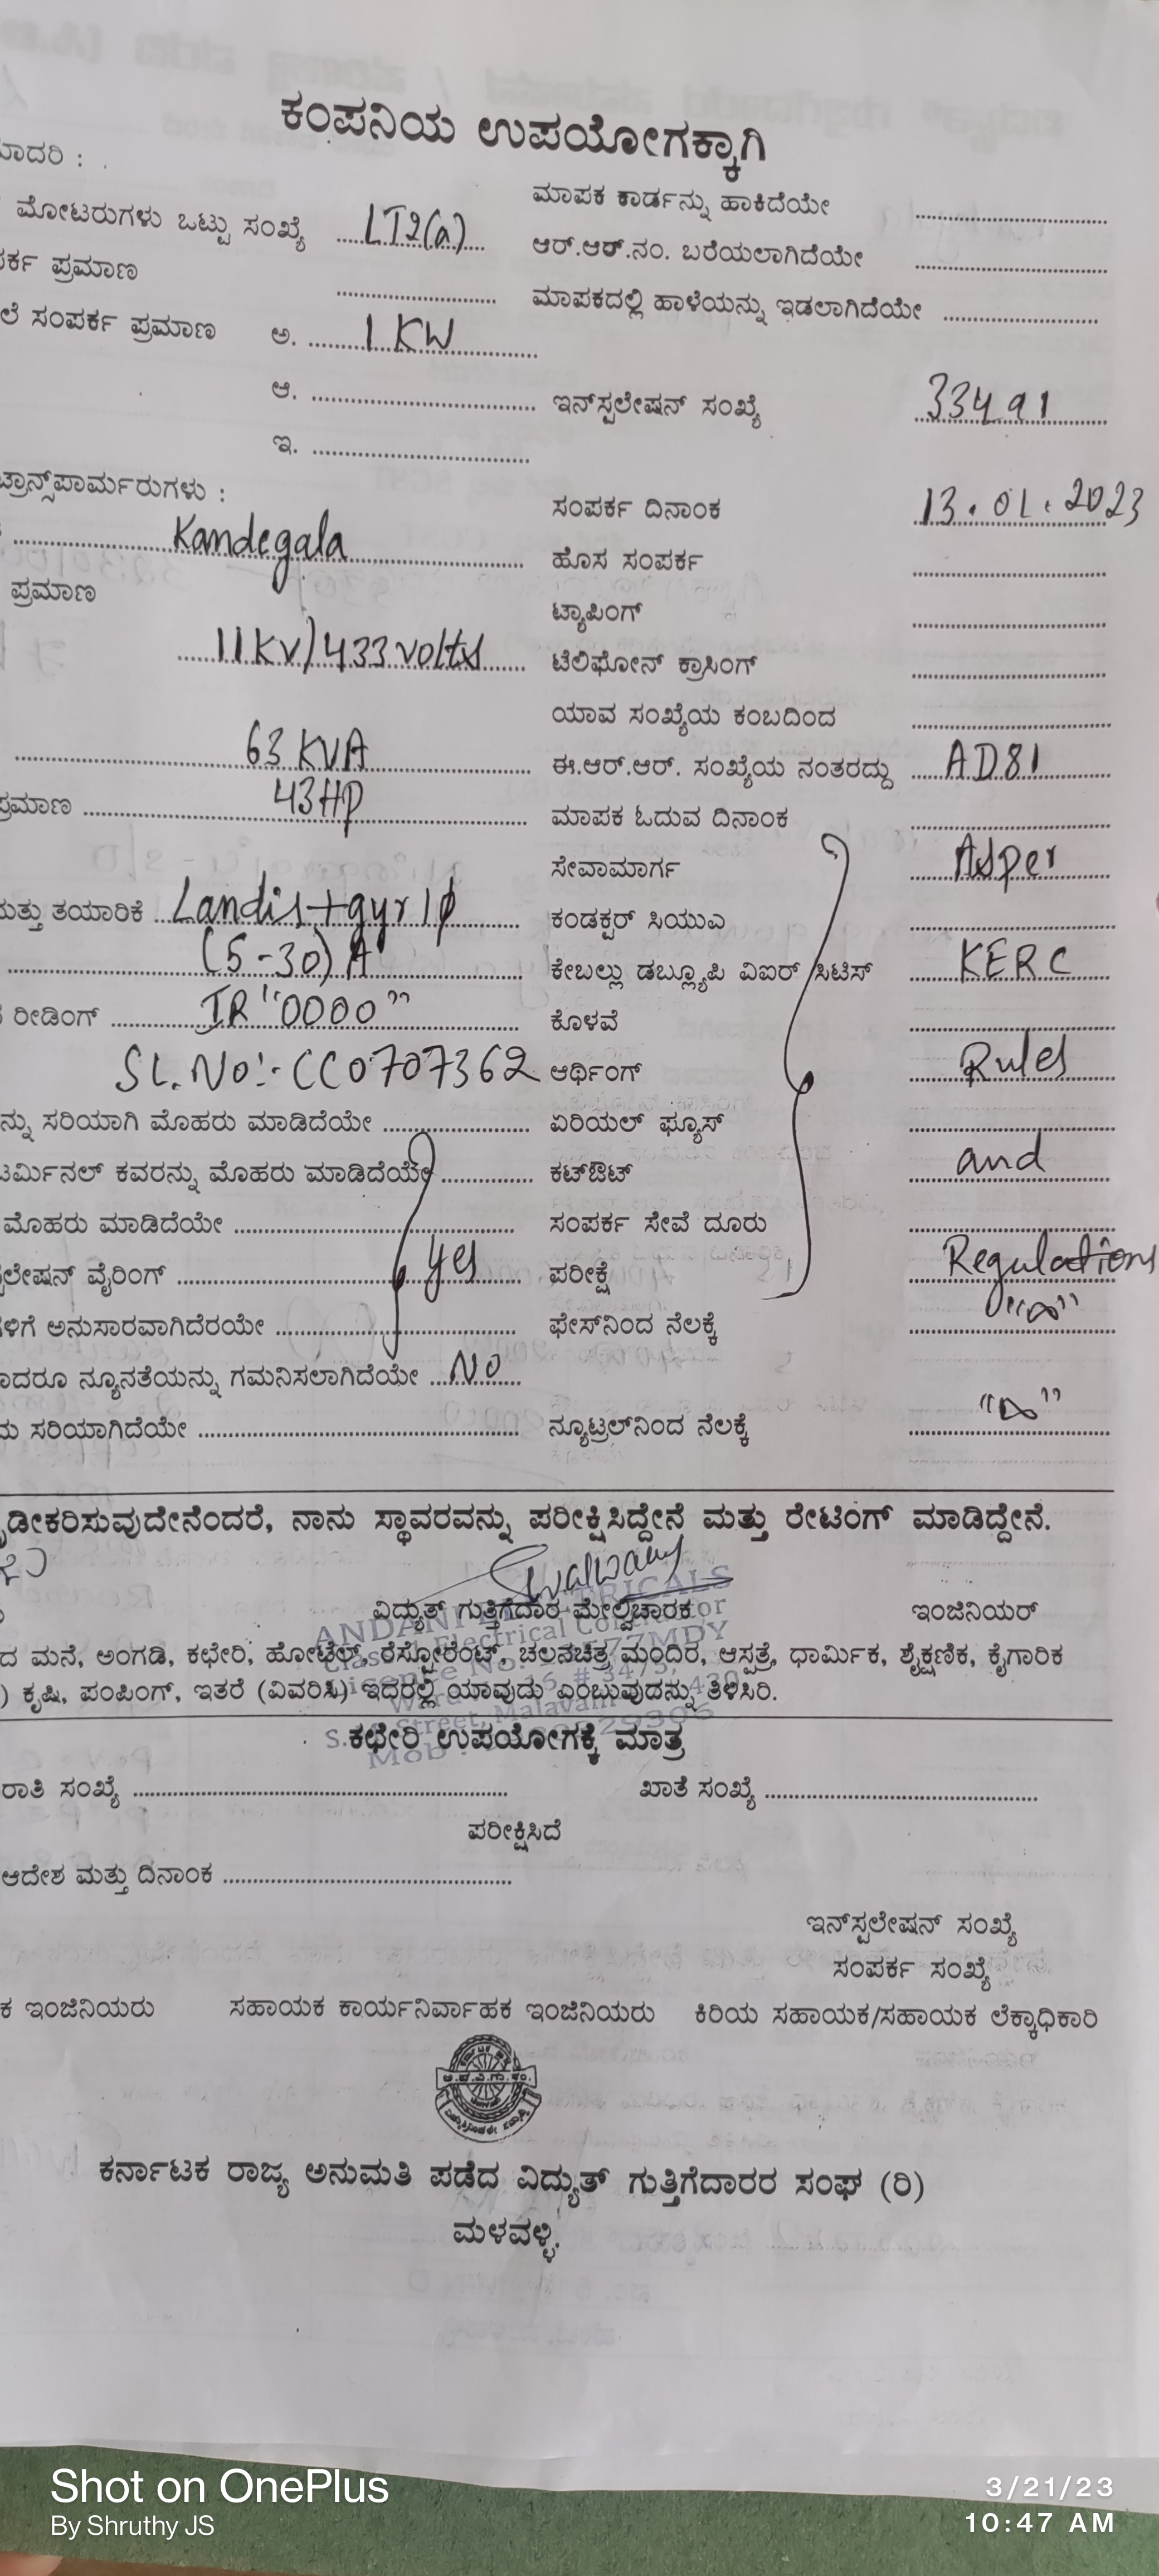 ಕಂಪನಿಯ ಉಪಯೋಗಕ್ಕಾಗಿ
ಮಾದರಿ :
ಮೋಟರುಗಳು ಒಟ್ಟು ಸಂಖ್ಯೆ LT2(a) ಮಾಪಕ ಕಾರ್ಡನ್ನು ಹಾಕಿದೆಯೇ
ಪರ್ಕ ಪ್ರಮಾಣ ಆರ್.ಆರ್.ನಂ. ಬರೆಯಲಾಗಿದೆಯೇ
ಲೆ ಸಂಪರ್ಕ ಪ್ರಮಾಣ ಅ. 1 KW ಮಾಪಕದಲ್ಲಿ ಹಾಳೆಯನ್ನು ಇಡಲಾಗಿದೆಯೇ
ಆ. ಇನ್‌ಸ್ಟಲೇಷನ್ ಸಂಖ್ಯೆ 33491
ಇ.
ಟ್ರಾನ್ಸ್‌ಪಾರ್ಮರುಗಳು : ಸಂಪರ್ಕ ದಿನಾಂಕ 13.01.2023
Kandegala ಹೊಸ ಸಂಪರ್ಕ
ಪ್ರಮಾಣ ಟ್ಯಾಪಿಂಗ್
11KV/433volts ಟೆಲಿಫೋನ್ ಕ್ರಾಸಿಂಗ್
ಯಾವ ಸಂಖ್ಯೆಯ ಕಂಬದಿಂದ
63 KVA ಈ.ಆರ್.ಆರ್. ಸಂಖ್ಯೆಯ ನಂತರದ್ದು AD81
ಪ್ರಮಾಣ 43HP ಮಾಪಕ ಓದುವ ದಿನಾಂಕ
ಸೇವಾಮಾರ್ಗ Asper
ಮತ್ತು ತಯಾರಿಕೆ Landis+gyr 1φ ಕಂಡಕ್ಟರ್ ಸಿಯುಎ
(5-30) A ಕೇಬಲ್ಲು ಡಬ್ಲ್ಯೂಪಿ ವಿಐರ್ ಸಿಟಿಸ್ KERC
ರೀಡಿಂಗ್ IR "0000" ಕೊಳವೆ
SL.No:- CC0707362 ಆರ್ಥಿಂಗ್ Rules
ನ್ನು ಸರಿಯಾಗಿ ಮೊಹರು ಮಾಡಿದೆಯೇ ಏರಿಯಲ್ ಫ್ಯೂಸ್
ಟರ್ಮಿನಲ್ ಕವರನ್ನು ಮೊಹರು ಮಾಡಿದೆಯೇ ಕಟ್‌ಔಟ್ and
ಮೊಹರು ಮಾಡಿದೆಯೇ ಸಂಪರ್ಕ ಸೇವೆ ದೂರು
ಲೇಷನ್ ವೈರಿಂಗ್ yes ಪರೀಕ್ಷೆ Regulations
ಳಿಗೆ ಅನುಸಾರವಾಗಿದೆರಯೇ ಫೇಸ್‌ನಿಂದ ನೆಲಕ್ಕೆ "∞"
ದಾದರೂ ನ್ಯೂನತೆಯನ್ನು ಗಮನಿಸಲಾಗಿದೆಯೇ NO
ಸರಿಯಾಗಿದೆಯೇ ನ್ಯೂಟ್ರಲ್‌ನಿಂದ ನೆಲಕ್ಕೆ "∞"
ಢೀಕರಿಸುವುದೇನೆಂದರೆ, ನಾನು ಸ್ಥಾವರವನ್ನು ಪರೀಕ್ಷಿಸಿದ್ದೇನೆ ಮತ್ತು ರೇಟಿಂಗ್ ಮಾಡಿದ್ದೇನೆ.
ವಿದ್ಯುತ್ ಗುತ್ತಿಗೆದಾರ ಮೇಲ್ವಿಚಾರಕ ಇಂಜಿನಿಯರ್
ದ ಮನೆ, ಅಂಗಡಿ, ಕಛೇರಿ, ಹೋಟೆಲ್, ರೆಸ್ಟೋರೆಂಟ್, ಚಲನಚಿತ್ರ ಮಂದಿರ, ಆಸ್ಪತ್ರೆ, ಧಾರ್ಮಿಕ, ಶೈಕ್ಷಣಿಕ, ಕೈಗಾರಿಕ
) ಕೃಷಿ, ಪಂಪಿಂಗ್, ಇತರೆ (ವಿವರಿಸಿ) ಇದರಲ್ಲಿ ಯಾವುದು ಎಂಬುವುದನ್ನು ತಿಳಿಸಿರಿ.
ಕಛೇರಿ ಉಪಯೋಗಕ್ಕೆ ಮಾತ್ರ
ರಾತಿ ಸಂಖ್ಯೆ ಖಾತೆ ಸಂಖ್ಯೆ
ಪರೀಕ್ಷಿಸಿದೆ
ಆದೇಶ ಮತ್ತು ದಿನಾಂಕ
ಇನ್‌ಸ್ಟಲೇಷನ್ ಸಂಖ್ಯೆ
ಸಂಪರ್ಕ ಸಂಖ್ಯೆ
ಕ ಇಂಜಿನಿಯರು ಸಹಾಯಕ ಕಾರ್ಯನಿರ್ವಾಹಕ ಇಂಜಿನಿಯರು ಕಿರಿಯ ಸಹಾಯಕ/ಸಹಾಯಕ ಲೆಕ್ಕಾಧಿಕಾರಿ
ಕರ್ನಾಟಕ ರಾಜ್ಯ ಅನುಮತಿ ಪಡೆದ ವಿದ್ಯುತ್ ಗುತ್ತಿಗೆದಾರರ ಸಂಘ (ರಿ)
ಮಳವಳ್ಳಿ.
Shot on OnePlus
By Shruthy JS
3/21/23
10:47 AM